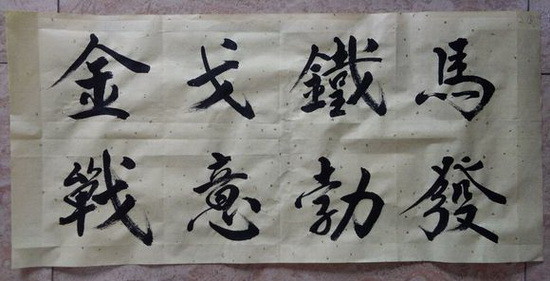 金戈鐵馬
戰意勃發